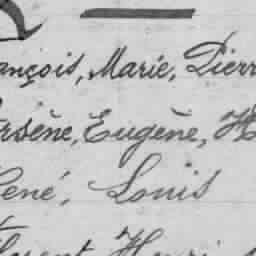 ançois, Marie, Pierr
rsène, Eugène, H
ené, Louis
Henri